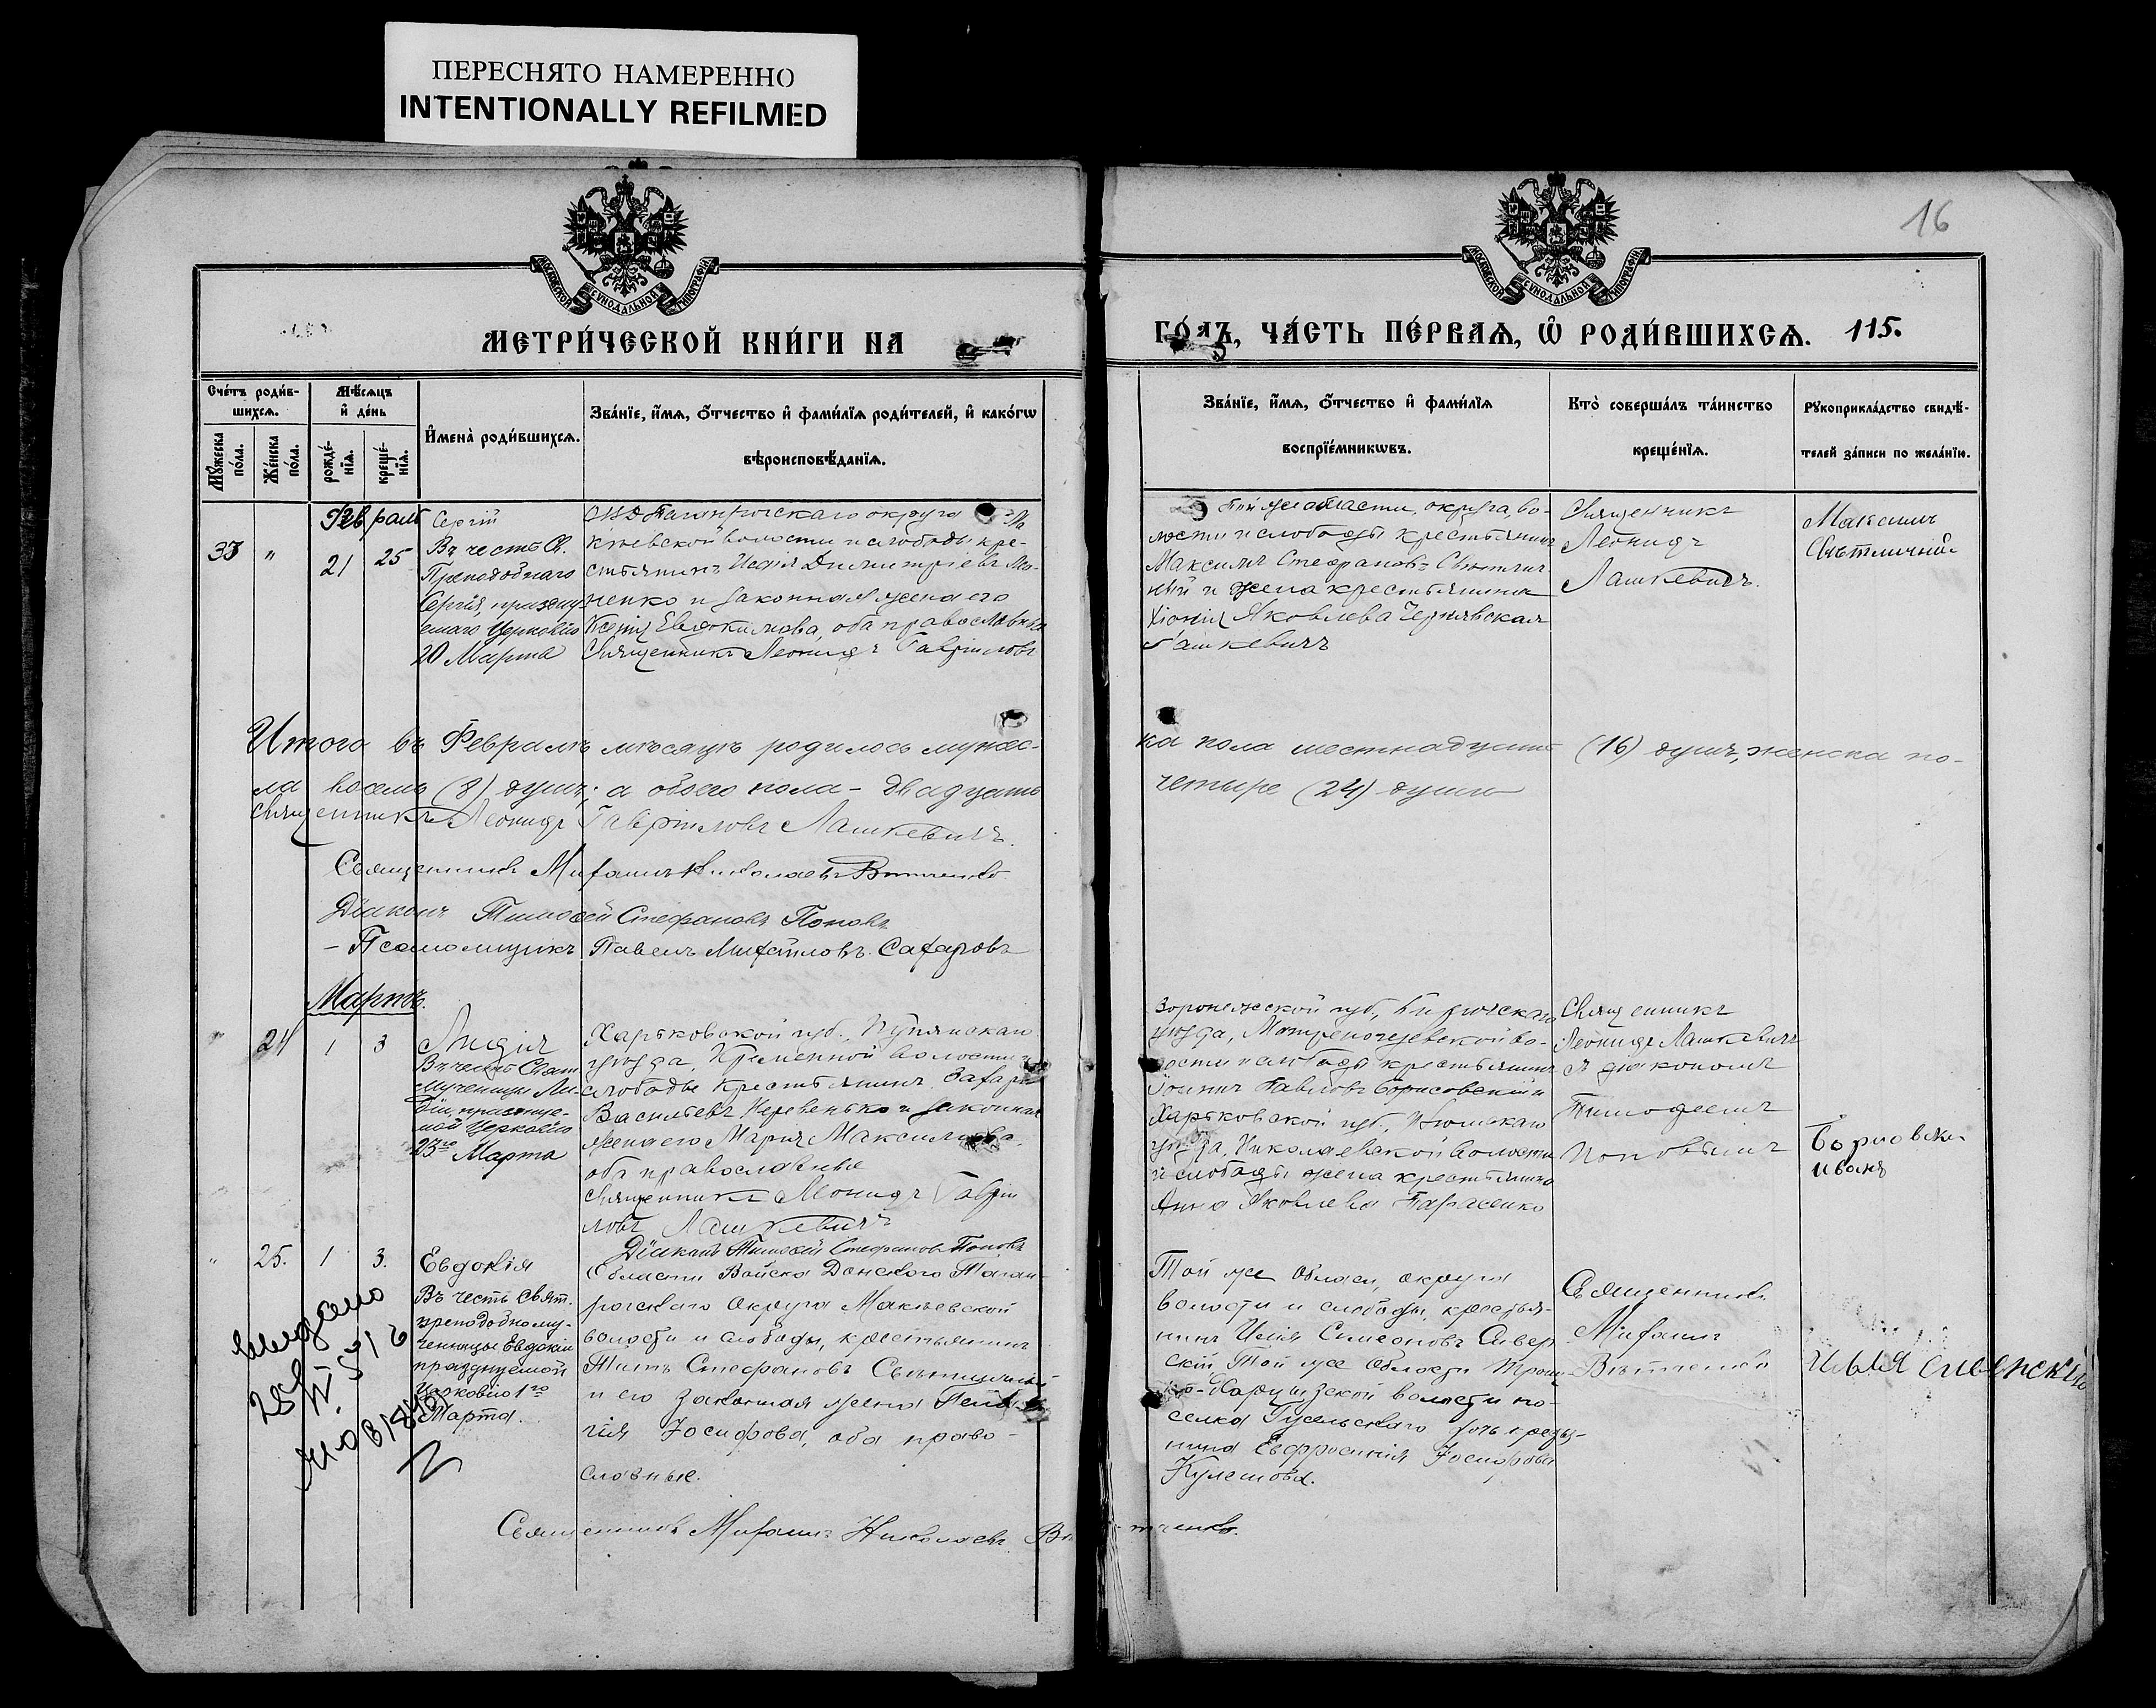 ПЕРЕСНЯТО НАМЕРЕННО
INTENTIONALLY REFILMED
16
МОСКОВСКОЙ СѴНОДАЛЬНОЙ ТИПОГРАФІИ
МОСКОВСКОЙ СѴНОДАЛЬНОЙ ТИПОГРАФІИ
МЕТРИ́ЧЕСКОЙ КНИ́ГИ НА
ГО́ДЪ, ЧА́СТЬ ПЕ́РВАѦ, Ѡ РОДИ́ВШИХСѦ. 115.
Сче́тъ роди́в-
шихсѧ.
Мꙋ́жеска по́ла.
Же́нска по́ла.
Мѣ́сѧцъ
и҆ де́нь
рожде́-
нїѧ.
креще́-
нїѧ.
И҆мена̀ роди́вшихсѧ.
Зва́нїе, и҆́мѧ, ѻ҆́тчество и҆ фами́лїѧ роди́телей, и҆ како́гѡ
вѣроисповѣ́данїѧ.
Зва́нїе, и҆́мѧ, ѻ҆́тчество и҆ фами́лїѧ
воспрїе́мникѡвъ.
Кто̀ соверша́лъ та́инство
креще́нїѧ.
Рꙋкоприкла́дство свидѣ́-
телей за́писи по жела́нїю.
Февраль
33 " 21 25
Сергій
Въ честь Св.
Преподобнаго
Сергія, праздну
емаго Церковію
20 Марта
ОВД Таганрогскаго округа Ма
кѣевской волости и слободы кре-
стьянинъ Исаія Димитріевъ
ненко и законная жена его
Ксенія Евдокимова, оба православные
Священникъ Леонидъ Гавриловъ
Той же области, округа, во-
лости и слободы крестьянинъ
Максимъ Стефановъ Свѣтлич
ный и жена крестьянина
Хіонія Яковлева Чернявская
Лашкевичъ
Священникъ
Леонидъ
Лашкевичъ.
Максимъ
Свѣтличный
Итого въ Февралѣ мѣсяцѣ родилось мужес-
ка пола шестнадцать (16) душъ, женска по-
ла восемь (8) душъ; а обоего пола - двадцать
четыре (24) души
Священникъ Леонидъ Гавриловъ Лашкевичъ.
Священникъ Михаилъ Николаевъ
Діаконъ Тимоѳей Стефановъ Поповъ
- Псаломщикъ Павелъ Михайловъ Сахаровъ
Мартъ.
" 24 1 3
Лидія
Въ честь Свят
мученицы Ли-
діи, празднуе-
мой Церковію
23го Марта
Харьковской губ., Купянскаго
уѣзда, Кременной волости и
слободы крестьянинъ Захарій
Васильевъ Неревенько и законная
жена его Марія Максимова,
оба православные
Священникъ Леонидъ Гаври
ловъ Лашкевичъ
Діаконъ Тимоѳей Стефановъ Поповъ
Воронежской губ., Бирюческаго
уѣзда, Матреногезевской во-
лости и слободы крестьянинъ
Іоаннъ Павловъ Борисовскій и
Харьковской губ., Изюмскаго
уѣзда, Николаевской волости
и слободы жена крестьянина
Анна Яковлева Тарасенко
Священникъ
Леонидъ Лашкевичъ
съ діакономъ
Тимоѳеемъ
Поповымъ
Иванъ
" 25. 1 3.
Евдокія
Въ честь Свят.
преподобному-
ченицы Евдокіи
празднуемой
Церковію 1го
Марта.
Области Войска Донского Таган-
рогскаго округа Макѣевской
волости и слободы, крестьянинъ
Титъ Стефановъ Свѣтличный
и его законная жена Пела
гія Іосифова, оба право-
славные.
Той же области, округа
волости и слободы, крестья-
нинъ Илія Симеоновъ Сивер
скій Той же области Трои
цко-Харцызской волости по-
селка Гусельскаго дочь кресть-
нина Евфросинія Іосифова
Кулешова.
Священникъ
Михаилъ
Илья
Священникъ Михаилъ Николаевъ